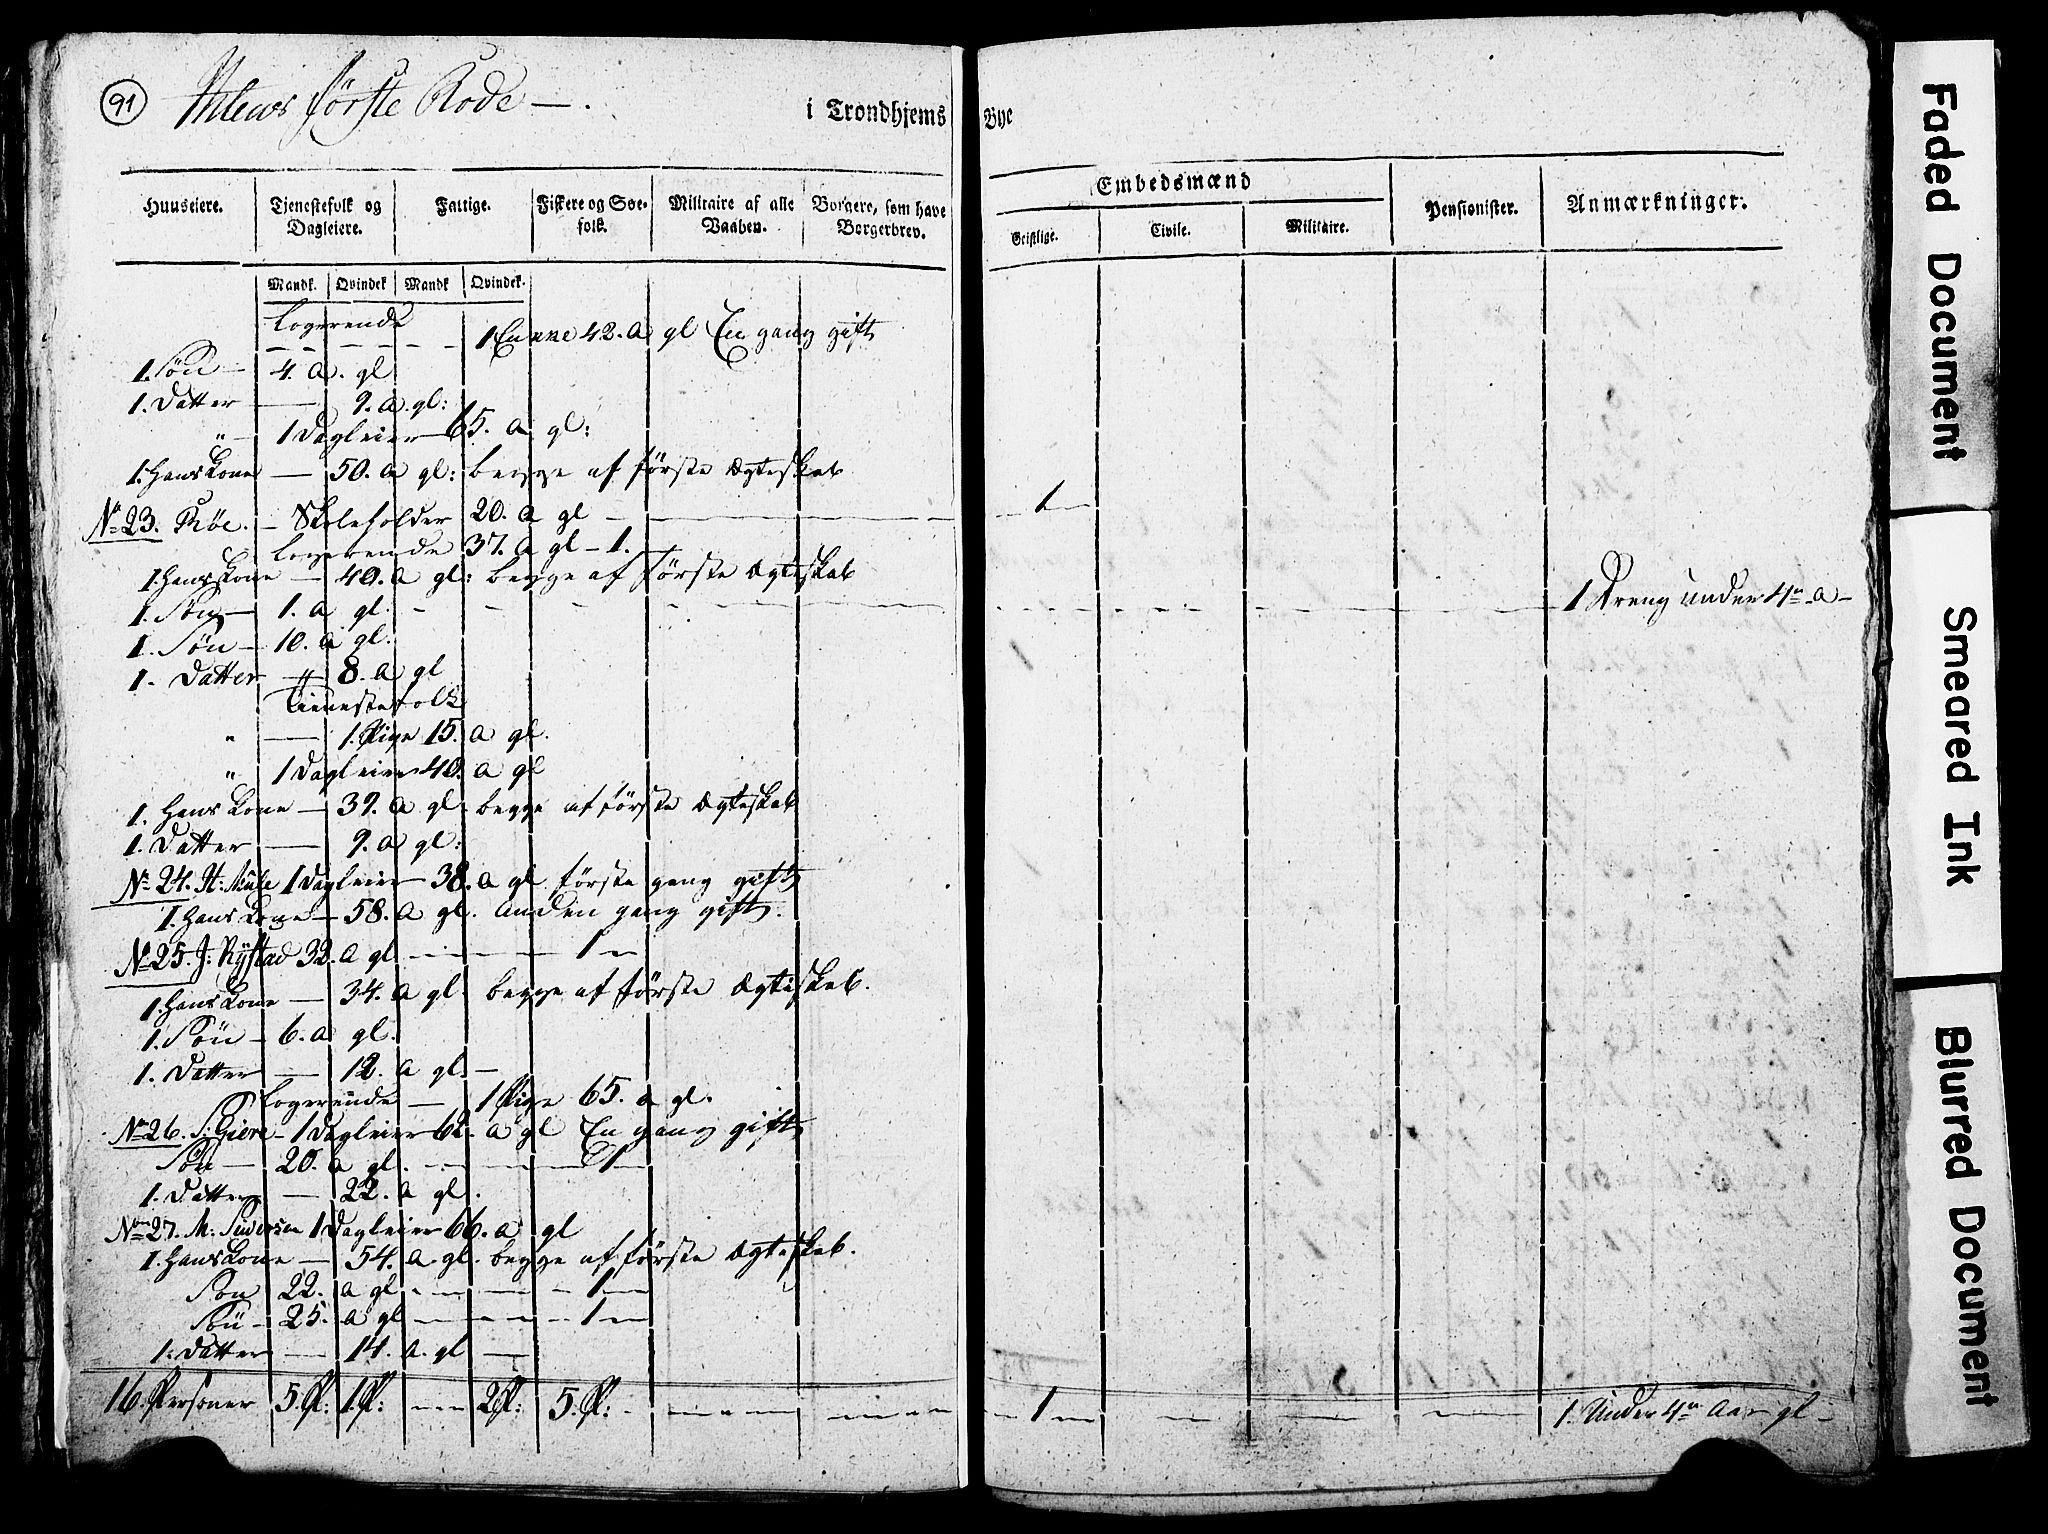 91
Ihlens første Rode
i Trondhjems Bye
Huuseiere. Tjenestefolk og Dagleiere. Fattige. Fiskere og Søefolk. Militaire af alle Vaaben. Borgere, som have Borgerbrev. Embedsmænd Pensionister. Anmærkninger.
Geistlige. Civile. Militaire.
Mandk. Qvindek Mandk Qvindek.
Logerende
1 Enke 42. a gl En gang gift
1. Søn — 4. a. gl
1. Datter — 9. a. gl:
" — 1 Dagleier 65. a gl:
1. Hans Kone — 50. a gl: begge af første Ægteskab
No 23. Røe. — Skoleholder 20. a gl — 1 —
Logerende 37. a gl — 1.
1. Hans Kone — 40. a gl: begge af første Ægteskab
1. Søn — 1. a gl. — 1 Dreng under 4re a —
1. Søn — 10. a gl.
1. Datter " 8. a gl
Tienestefolk
" — 1. Pige 15. a gl.
" 1 Dagleier 40. a gl
1. Hans Kone — 39. a gl: begge af første Ægteskab
1. Datter — 9. a gl:
No 24. H: Mule 1 Dagleier 38. a gl. første gang gift
1. Hans Kone — 58. a gl. anden gang gift.
No 25. J: Rystad 32. a gl. — 1 —
1. Hans Kone — 34. a gl. begge af første Ægteskab.
1. Søn — 6. a gl.
1. Datter — 12. a gl. —
Logerende — 1 Pige 65. a gl.
No 26. S: Giere — 1 Dagleier 62. a gl En gang gift
Søn — 20. a gl. — 1 —
1. Datter — 22. a gl.
No 27. M: Siversen 1 Dagleier 66. a gl
1. Hans Kone — 54. a. gl. begge af første Ægteskab.
Søn 22. a gl — 1 —
Søn — 25. a gl — 1 —
1. Datter — 14. a. gl —
16. Personer 5. P: 1. P: — 2 P: 5. P: — 1 — 1. Under 4re Aar gl —
Faded Document
Smeared Ink
Blurred Document